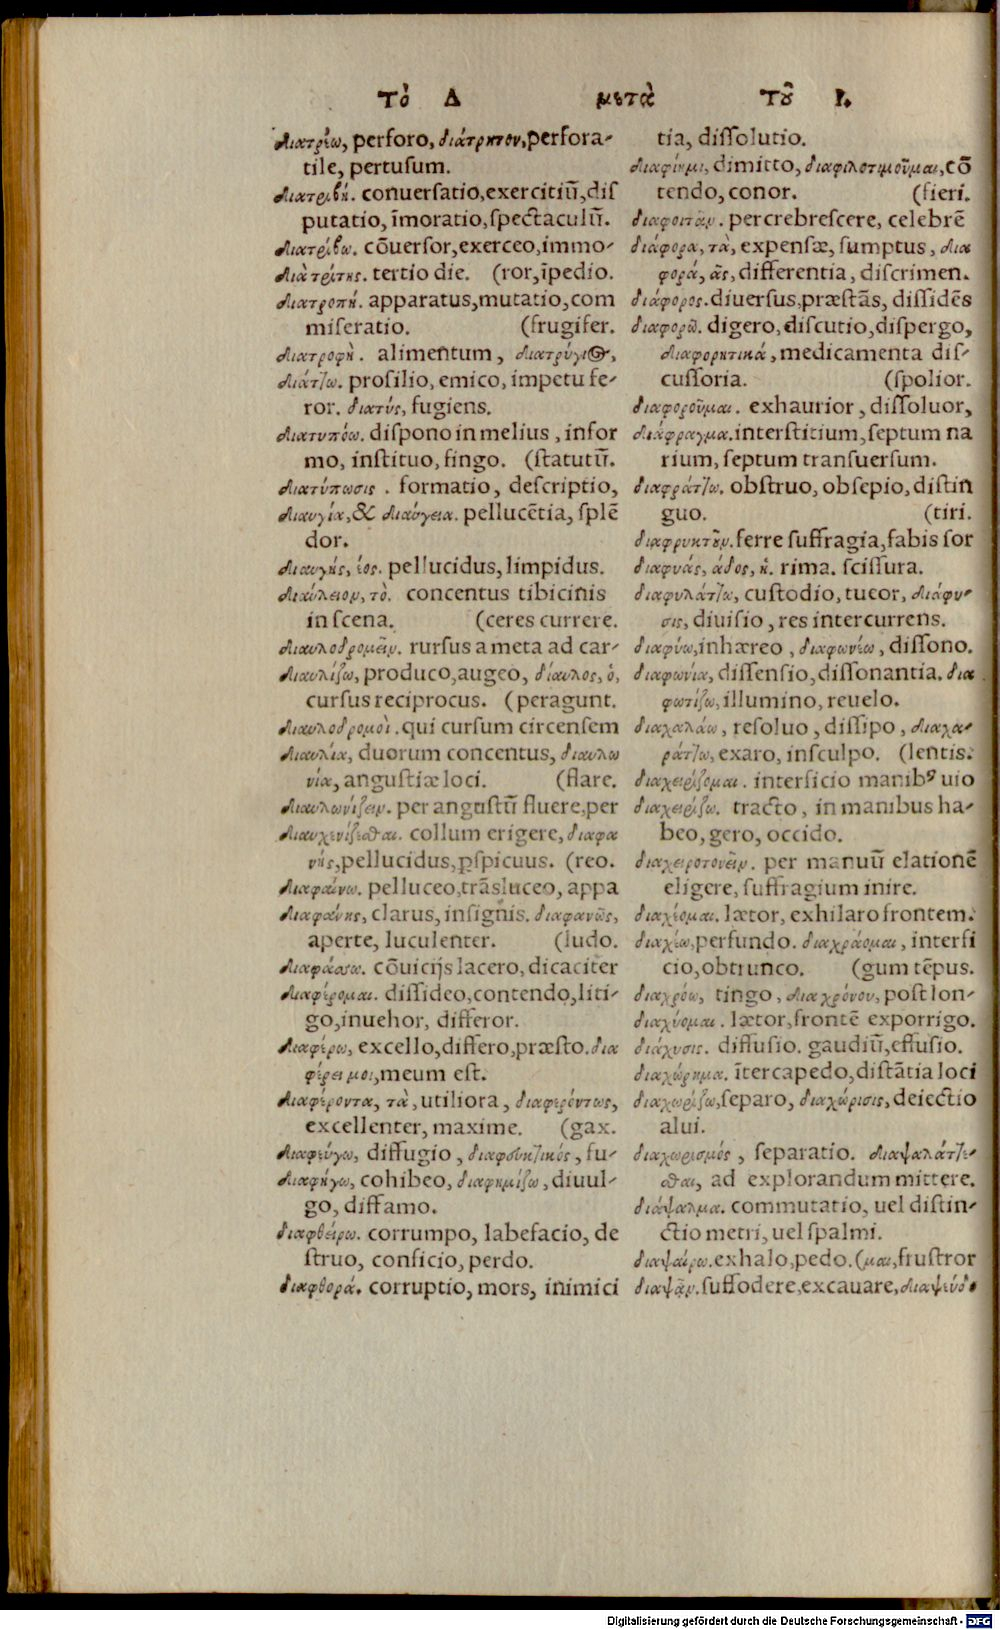 Τὸ Δ μετὰ τοῦ Ι.
διατρέω, perforo, διάτρητον, perfora-
tile, pertusum.
διατριβή. conuersatio, exercitiū, dis
putatio, īmoratio, spectaculū.
διατρίβω. cōuersor, exerceo, immo-
διὰ τρίτης. tertio die. (ror, īpedio.
διατροπή. apparatus, mutatio, com
miseratio. (frugifer.
διατροφὴ. alimentum, διατρύγιος,
διάτζω. prosilio, emico, impetu fe-
ror. διατύς, fugiens.
διατυπόω. dispono in melius, infor
mo, instituo, fingo. (statutū.
διατύπωσις. formatio, descriptio,
διαυγία, & διαύγεια. pellucētia, splē
dor.
διαυγής, έος. pellucidus, limpidus.
διαύλειον, τὸ. concentus tibicinis
in scena. (ceres currere.
διαυλοδρομεῖν. rursus a meta ad car-
διαυλίζω, produco, augeo, δίαυλος, ὁ,
cursus reciprocus. (peragunt.
διαυλοδρομοὶ. qui cursum circensem
διαυλία, duorum concentus, διαυλω
νία, angustiæ loci. (flare.
διαυλωνίζειν. per angustū fluere, per
διαυχενίζεσθαι. collum erigere, διαφα
νής, pellucidus, ꝑspicuus. (reo.
διαφαίνω. pelluceo, trāsluceo, appa
διαφαίνης, clarus, insignis. διαφανῶς,
aperte, luculenter. (ludo.
διαφάσσω. cōuicijs lacero, dicaciter
διαφέρομαι. dissideo, contendo, liti-
go, inuehor, differor.
διαφέρω, excello, differo, præsto. δια
φέρει μοι, meum est.
διαφέροντα, τὰ, utiliora, διαφερόντως,
excellenter, maxime. (gax.
διαφεύγω, diffugio, διαφευκτικός, fu-
διαφήγω, cohibeo, διαφημίζω, diuul-
go, diffamo.
διαφθείρω. corrumpo, labefacio, de
struo, conficio, perdo.
διαφθορά. corruptio, mors, inimici
tia, dissolutio.
διαφίημι, dimitto, διαφιλοτιμοῦμαι, cō
tendo, conor. (fieri.
διαφοιτᾶν. percrebrescere, celebrē
διάφορα, τὰ, expensæ, sumptus, δια
φορά, ᾶς, differentia, discrimen.
διάφορος. diuersus, præstās, dissidēs
διαφορῶ. digero, discutio, dispergo,
διαφορητικά, medicamenta dis-
cussoria. (spolior.
διαφοροῦμαι. exhaurior, dissoluor,
διάφραγμα. interstitium, septum na
rium, septum transuersum.
διαφράτζω. obstruo, obsepio, distin
guo. (tiri.
διαφρυκτοῦν. ferre suffragia, fabis sor
διαφυάς, άδος, ἡ. rima. scissura.
διαφυλάτζω, custodio, tueor, διάφυ-
σις, diuisio, res intercurrens.
διαφύω, inhæreo, διαφωνέω, dissono.
διαφωνία, dissensio, dissonantia. δια
φωτίζω, illumino, reuelo.
διαχαλάω, resoluo, dissipo, διαχα-
ράτζω, exaro, insculpo. (lentis.
διαχειρίζομαι. interficio manibꝰ uio
διαχειρίζω. tracto, in manibus ha-
beo, gero, occido.
διαχειροτονεῖν. per manuū elationē
eligere, suffragium inire.
διαχέομαι. lætor, exhilaro frontem.
διαχέω, perfundo. διαχράομαι, interfi
cio, obtrunco. (gum tēpus.
διαχρόω, tingo, διὰ χρόνου, post lon-
διαχύομαι. lætor, frontē exporrigo.
διάχυσις. diffusio. gaudiū, effusio.
διαχώρημα. ītercapedo, distātia loci
διαχωρίζω, separo, διαχώρισις, deiectio
alui.
διαχωρισμός, separatio. διαψαλάτζε-
σθαι, ad explorandum mittere.
διάψαλμα. commutatio, uel distin-
ctio metri, uel spalmi.
διαψαίρω. exhalo, pedo. (μαι, frustror
διαψᾷν. suffodere, excauare, διαψεύδο
Digitalisierung gefördert durch die Deutsche Forschungsgemeinschaft - DFG